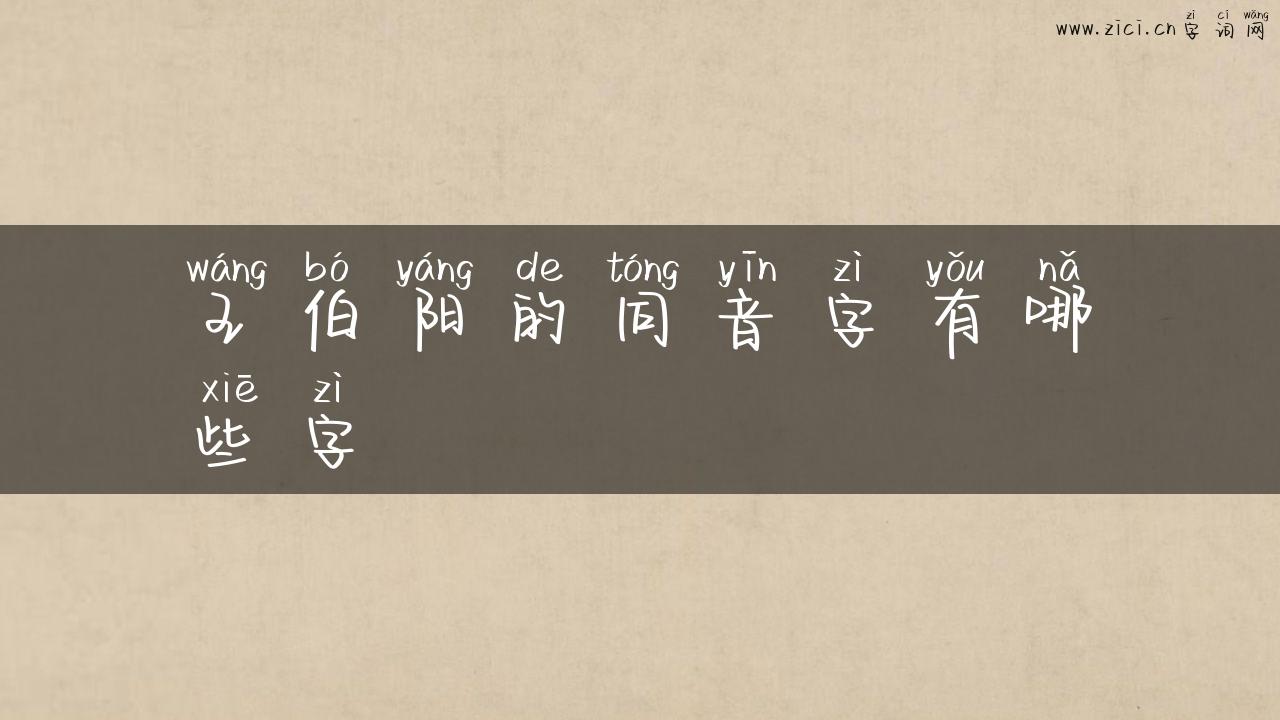 zì cí wǎng
www.zici.cn 字词网
wáng bó yáng de tóng yīn zì yǒu nǎ
王伯阳的同音字有哪
xiē zì
些字